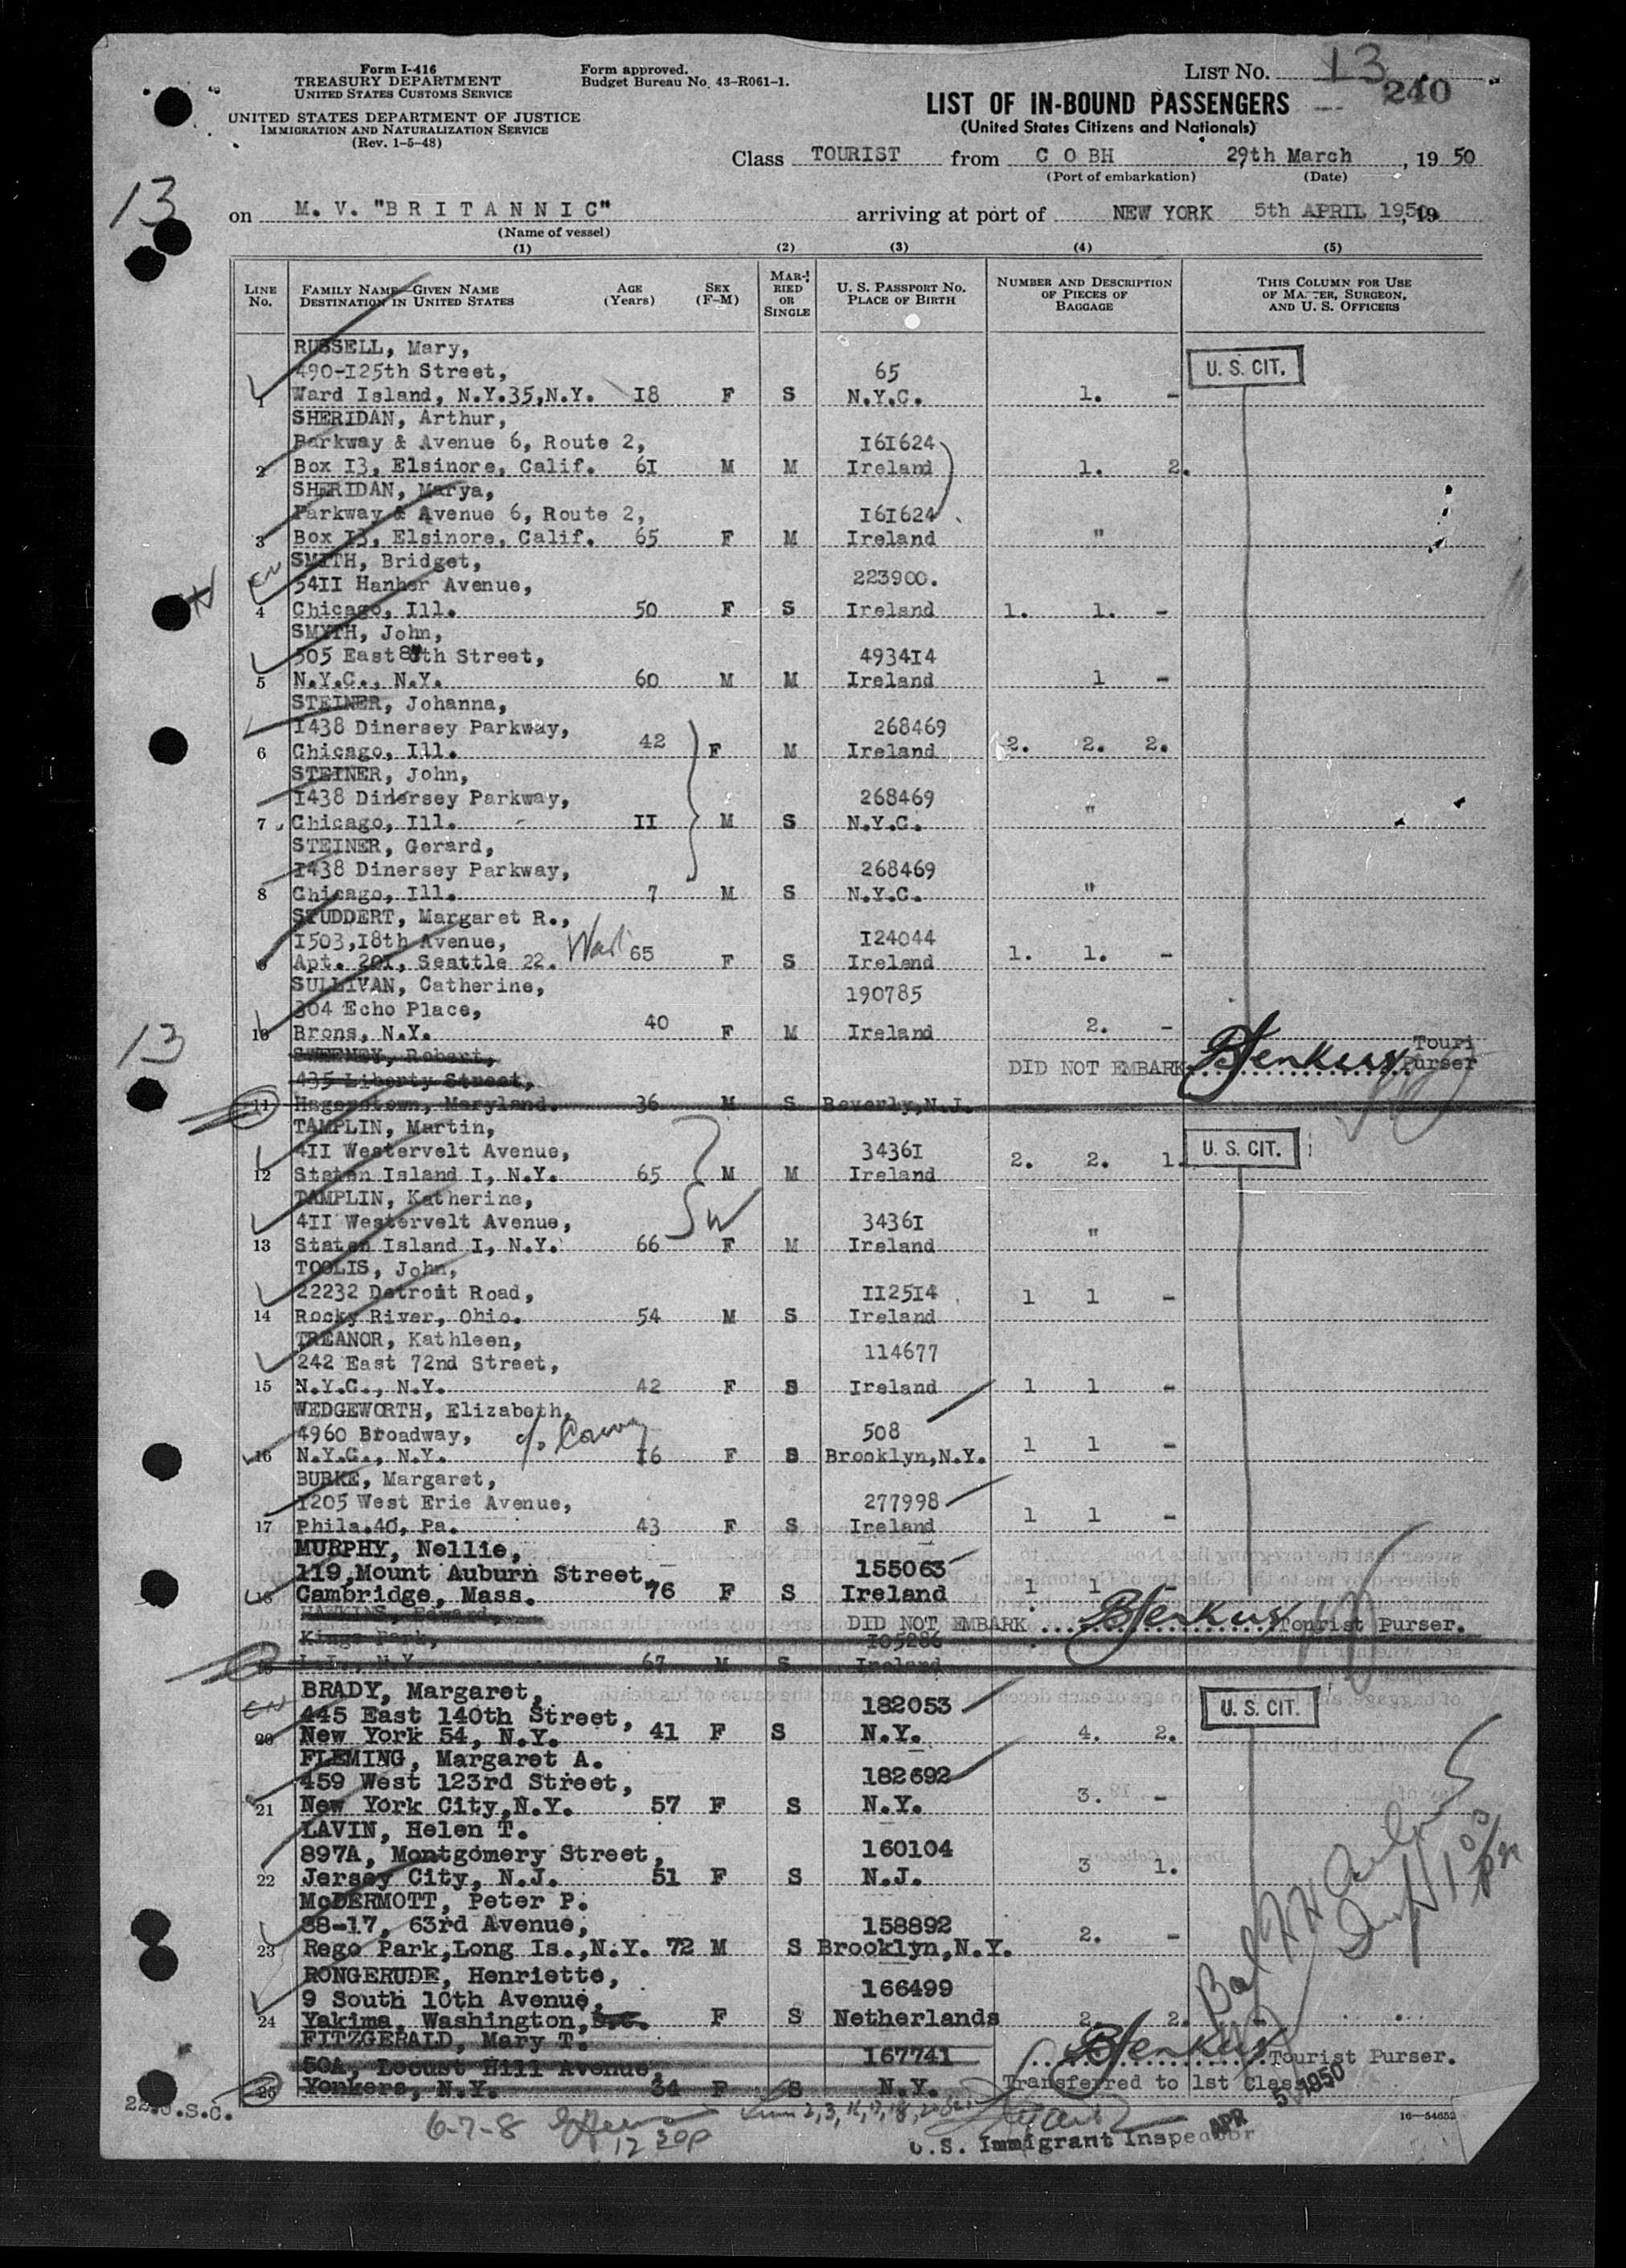 Form I-416
TREASURY DEPARTMENT
UNITED STATES CUSTOMS SERVICE
UNITED STATES DEPARTMENT OF JUSTICE
IMMIGRATION AND NATURALIZATION SERVICE
(Rev. 1-5-48)
Form approved.
Budget Bureau No. 43-R061-1.
LIST NO. 13
240
LIST OF IN-BOUND PASSENGERS
(United States Citizens and Nationals)
Class TOURIST from C O BH 29th March, 19 50
(Port of embarkation) (Date)
13
on M. V. "B R I T A N N I C" arriving at port of NEW YORK 5th APRIL 1950, 19
(Name of vessel)
(1) (2) (3) (4) (5)
LINE No. FAMILY NAME—GIVEN NAME DESTINATION IN UNITED STATES AGE (Years) SEX (F-M) MARRIED OR SINGLE U. S. PASSPORT NO. PLACE OF BIRTH NUMBER AND DESCRIPTION OF PIECES OF BAGGAGE THIS COLUMN FOR USE OF MASTER, SURGEON, AND U. S. OFFICERS
RUSSELL, Mary,
490-125th Street, 65 U. S. CIT.
1 Ward Island, N.Y.35,N.Y. 18 F S N.Y.C. 1. -
SHERIDAN, Arthur,
Parkway & Avenue 6, Route 2, 161624
2 Box 13, Elsinore, Calif. 61 M M Ireland 1. 2.
SHERIDAN, Marya,
Parkway & Avenue 6, Route 2, 161624
3 Box 13, Elsinore, Calif. 65 F M Ireland "
SMITH, Bridget,
5411 Hanher Avenue, 223900.
4 Chicago, Ill. 50 F S Ireland 1. 1. -
SMYTH, John,
505 East 8th Street, 493414
5 N.Y.C., N.Y. 60 M M Ireland 1 -
STEINER, Johanna,
1438 Dinersey Parkway, 268469
6 Chicago, Ill. 42 F M Ireland 2. 2. 2.
STEINER, John,
1438 Dinersey Parkway, 268469
7 Chicago, Ill. 11 M S N.Y.C. "
STEINER, Gerard,
1438 Dinersey Parkway, 268469
8 Chicago, Ill. 7 M S N.Y.C. "
STUDDERT, Margaret R.,
1503,18th Avenue, 124044
9 Apt. 201, Seattle 22. Wash 65 F S Ireland 1. 1. -
SULLIVAN, Catherine,
304 Echo Place, 190785
10 Brons, N.Y. 40 F M Ireland 2. -
13
SWEENEY, Robert, DID NOT EMBARK Touri Purser
435 Liberty Street,
11 Hagerstown, Maryland. 36 M S Beverly,N.J.
TAMPLIN, Martin,
411 Westervelt Avenue, 34361 U. S. CIT.
12 Staten Island I, N.Y. 65 M M Ireland 2. 2. 1.
TAMPLIN, Katherine,
411 Westervelt Avenue, 34361
13 Staten Island I, N.Y. 66 F M Ireland "
TOOLIS, John,
22232 Detroit Road, 112514
14 Rocky River, Ohio. 54 M S Ireland 1 1 -
TREANOR, Kathleen,
242 East 72nd Street, 114677
15 N.Y.C., N.Y. 42 F S Ireland 1 1 -
WEDGEWORTH, Elizabeth,
4960 Broadway, 508
16 N.Y.C., N.Y. 16 F S Brooklyn,N.Y. 1 1 -
BURKE, Margaret,
1205 West Erie Avenue, 277998
17 Phila.40, Pa. 43 F S Ireland 1 1 -
MURPHY, Nellie,
119,Mount Auburn Street, 155063
18 Cambridge, Mass. 76 F S Ireland 1 1 -
HAWKINS, Edward, DID NOT EMBARK Tourist Purser.
Kings Park, 105286
19 L.I., N.Y. 67 M S Ireland
BRADY, Margaret,
445 East 140th Street, 182053 U. S. CIT.
20 New York 54, N.Y. 41 F S N.Y. 4. 2.
FLEMING, Margaret A.
459 West 123rd Street, 182692
21 New York City,N.Y. 57 F S N.Y. 3. -
LAVIN, Helen T.
897A, Montgomery Street, 160104
22 Jersey City, N.J. 51 F S N.J. 3 1.
McDERMOTT, Peter P.
88-17, 63rd Avenue, 158892
23 Rego Park,Long Is.,N.Y. 72 M S Brooklyn,N.Y. 2. -
RONGERUDE, Henriette,
9 South 10th Avenue, 166499
24 Yakima, Washington, F S Netherlands 2. 2. -
FITZGERALD, Mary T. Tourist Purser.
50A, Locust Hill Avenue, 167741
25 Yonkers, N.Y. 34 F S N.Y. Transferred to 1st Class.
22.U.S.C.
6-7-8
APR 5 1950
U.S. Immigrant Inspector
16-54652